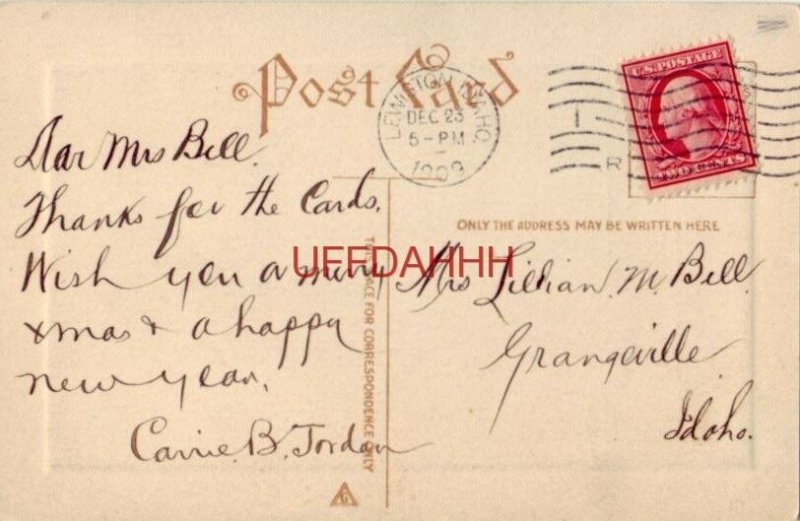 Post Card
LEWISTON, IDAHO.
DEC 23
5-PM
1909
U.S. POSTAGE
TWO CENTS
R
Dear Mrs Bell.
Thanks for the Cards.
Wish you a merry
xmas & a happy
new year.
Carrie. B. Jordan
THIS SPACE FOR CORRESPONDENCE ONLY
ONLY THE ADDRESS MAY BE WRITTEN HERE
Mrs Lillian. M. Bell.
Grangeville
Idaho.
UFFDAHHH
G